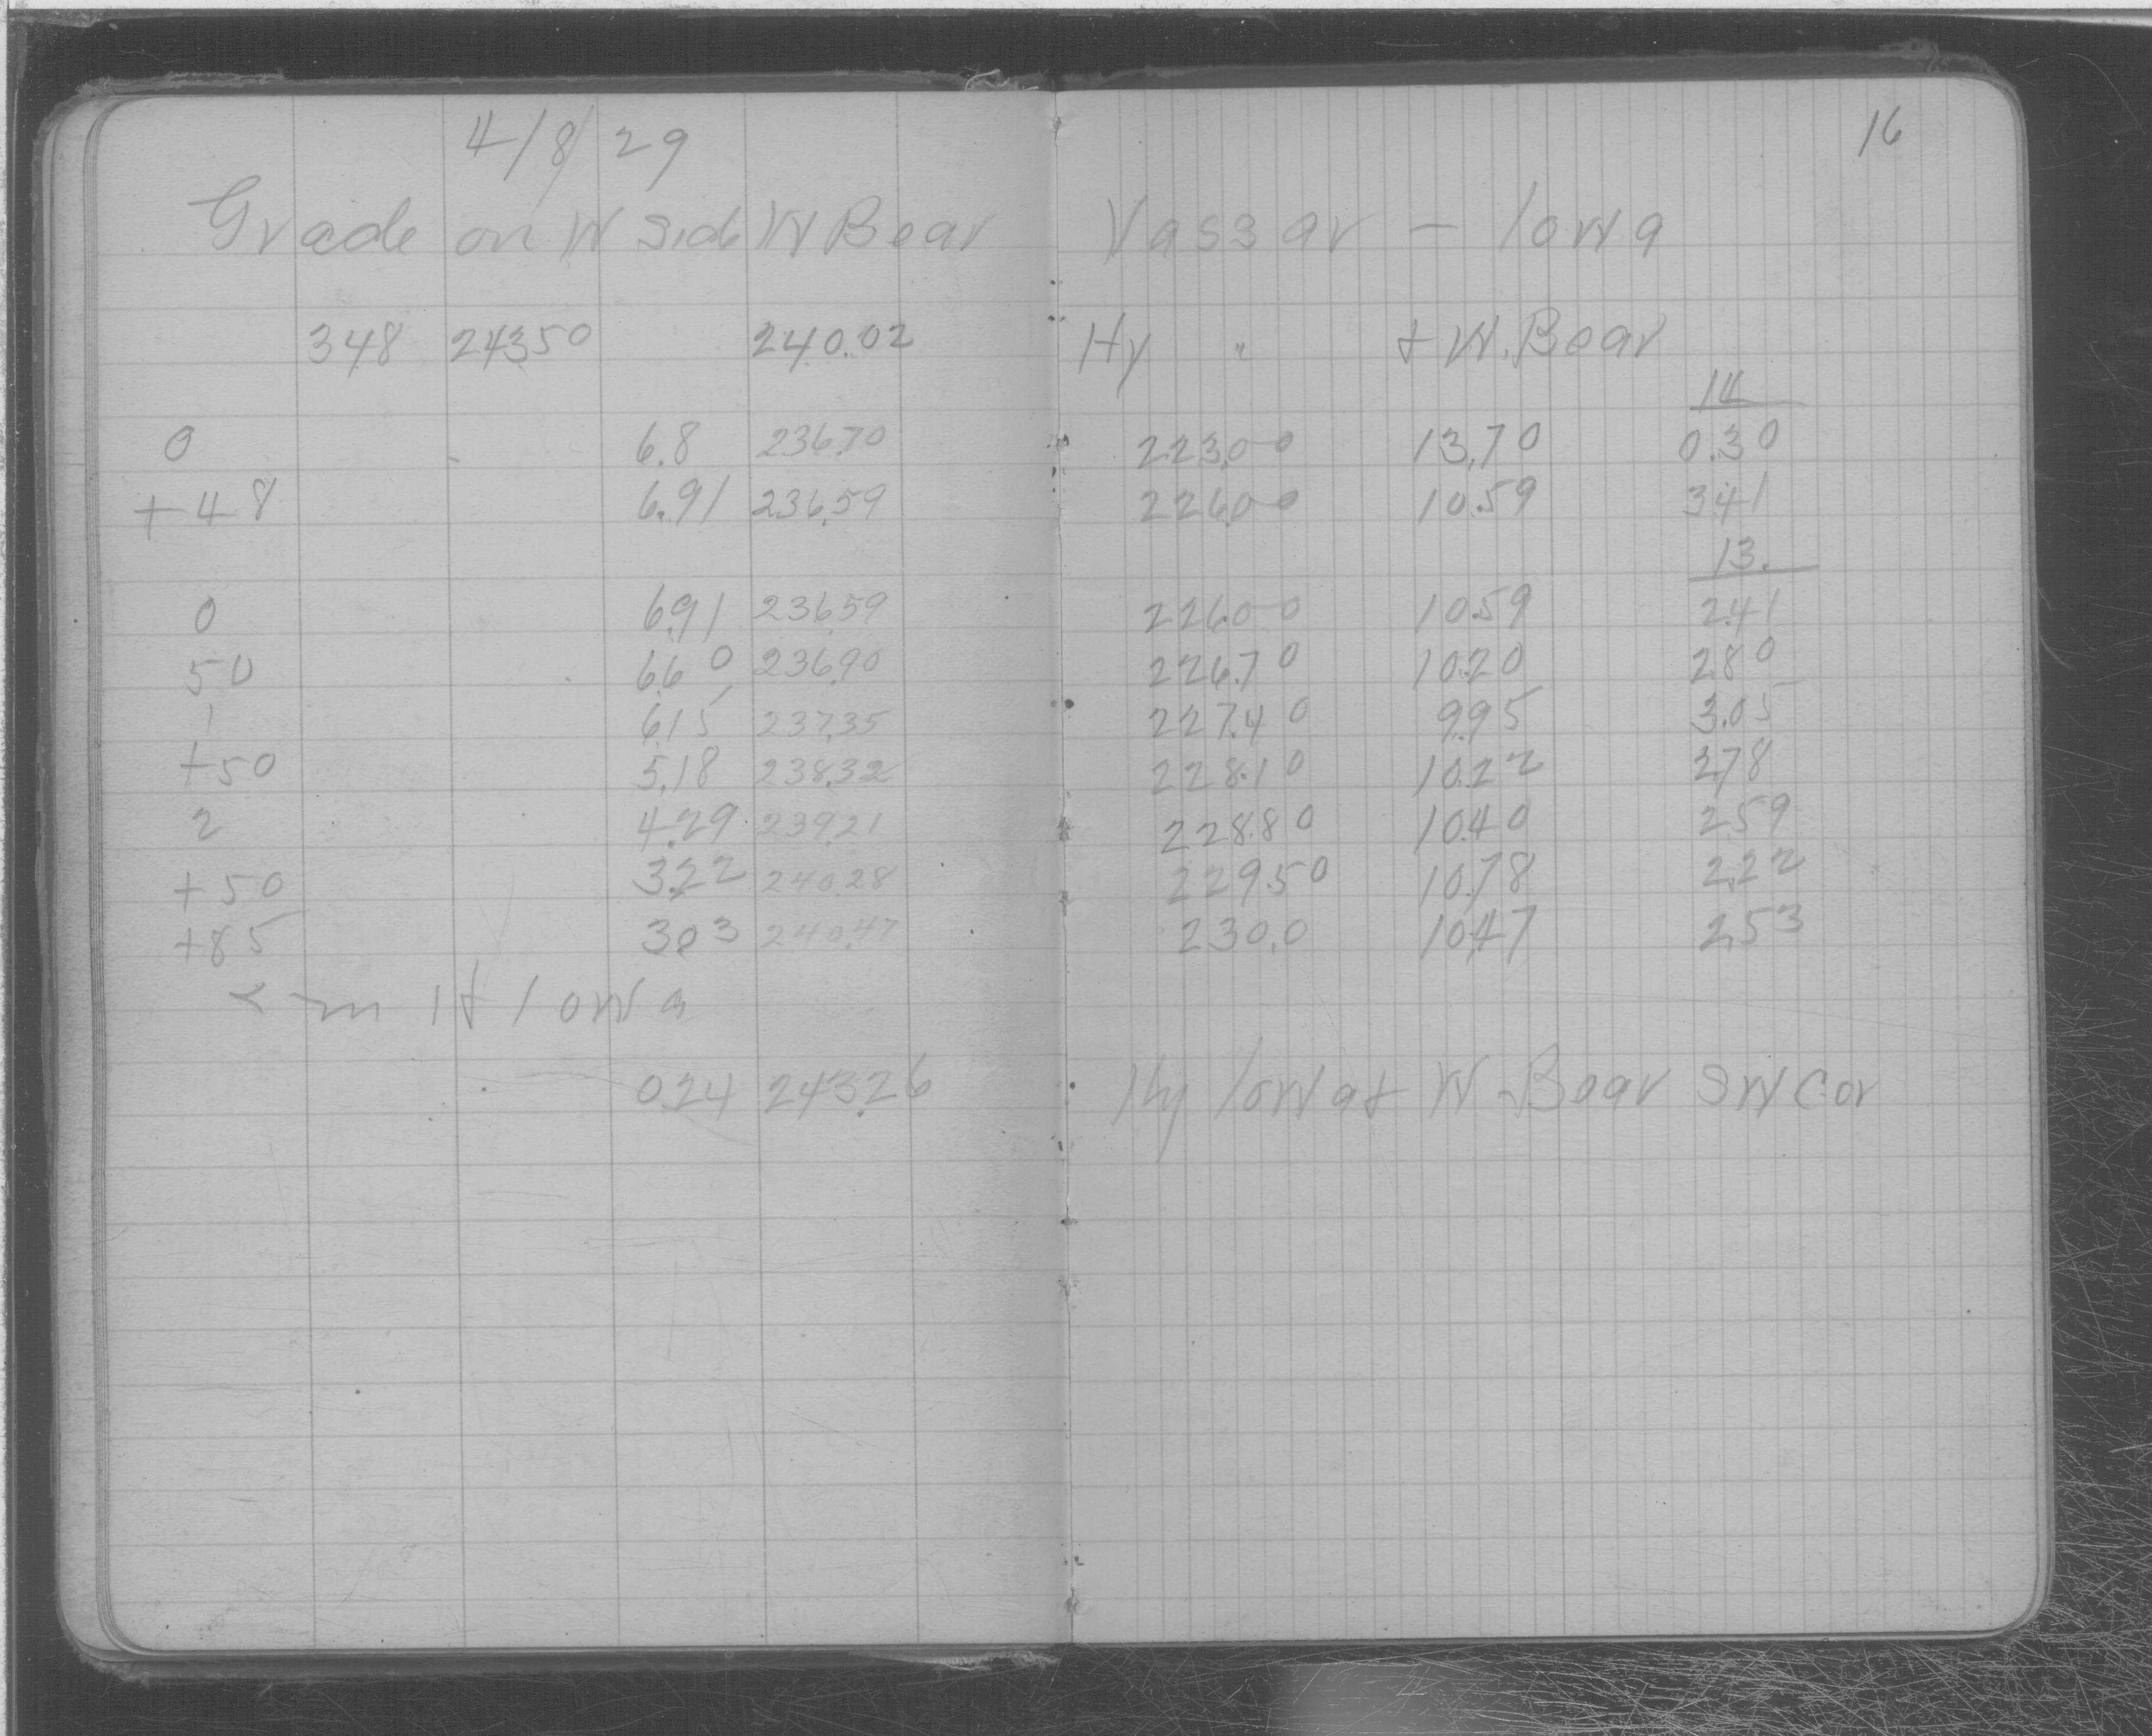 16
4/8/29
Grade on W Side W Bear Vassar - Iowa
3.48 243.50 240.02 Hy " + W. Bear
14
0 6.8 236.70 223.00 13.70 0.30
+48 6.91 236.59 226.00 10.59 3.41
13.
0 6.91 236.59 226.00 10.59 2.41
50 6.60 236.90 226.70 10.20 2.80
1 6.15 237.35 227.40 9.95 3.05
+50 5.18 238.32 228.10 10.22 2.78
2 4.29 239.21 228.80 10.40 2.59
+50 3.22 240.28 229.50 10.78 2.22
+85 3.03 240.47 230.0 10.47 2.53
Iowa
0.24 243.26 Hy Iowa + W-Bear SW Cor